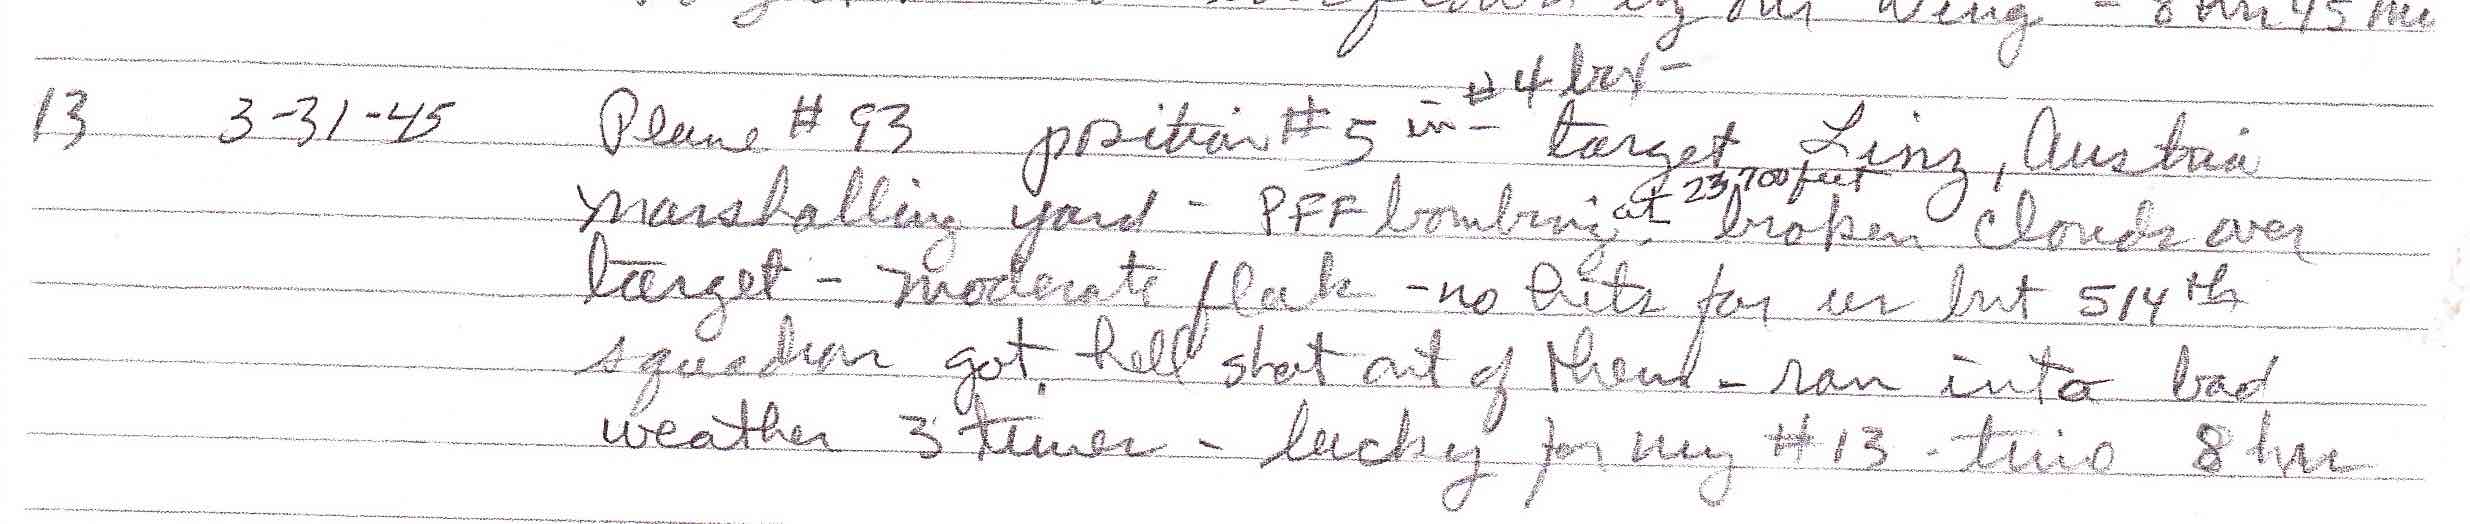 by our Wing - 8 hrs 45 mi
#4 box -
13 3-31-45 Plane # 93 position # 5 in - target Linz, Austria
marshalling yard - PFF bombing at 23,700 feet - broken clouds over
target - moderate flak - no hits for us but 514th
squadron got hell shot out of them - ran into bad
weather 3 times - lucky for my # 13 - time 8 hrs